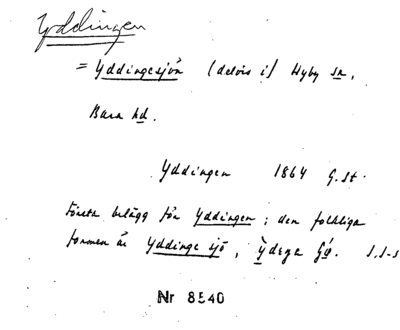 Yddingen
= Yddingesjön (delvis i) Hyby sn,
Bara hd.
Yddingen 1864 G.St.
Första belägg för Yddingen; den folkliga
formen är Yddinge sjö, ỳdega Gǿ. S.S-s
Nr 8540